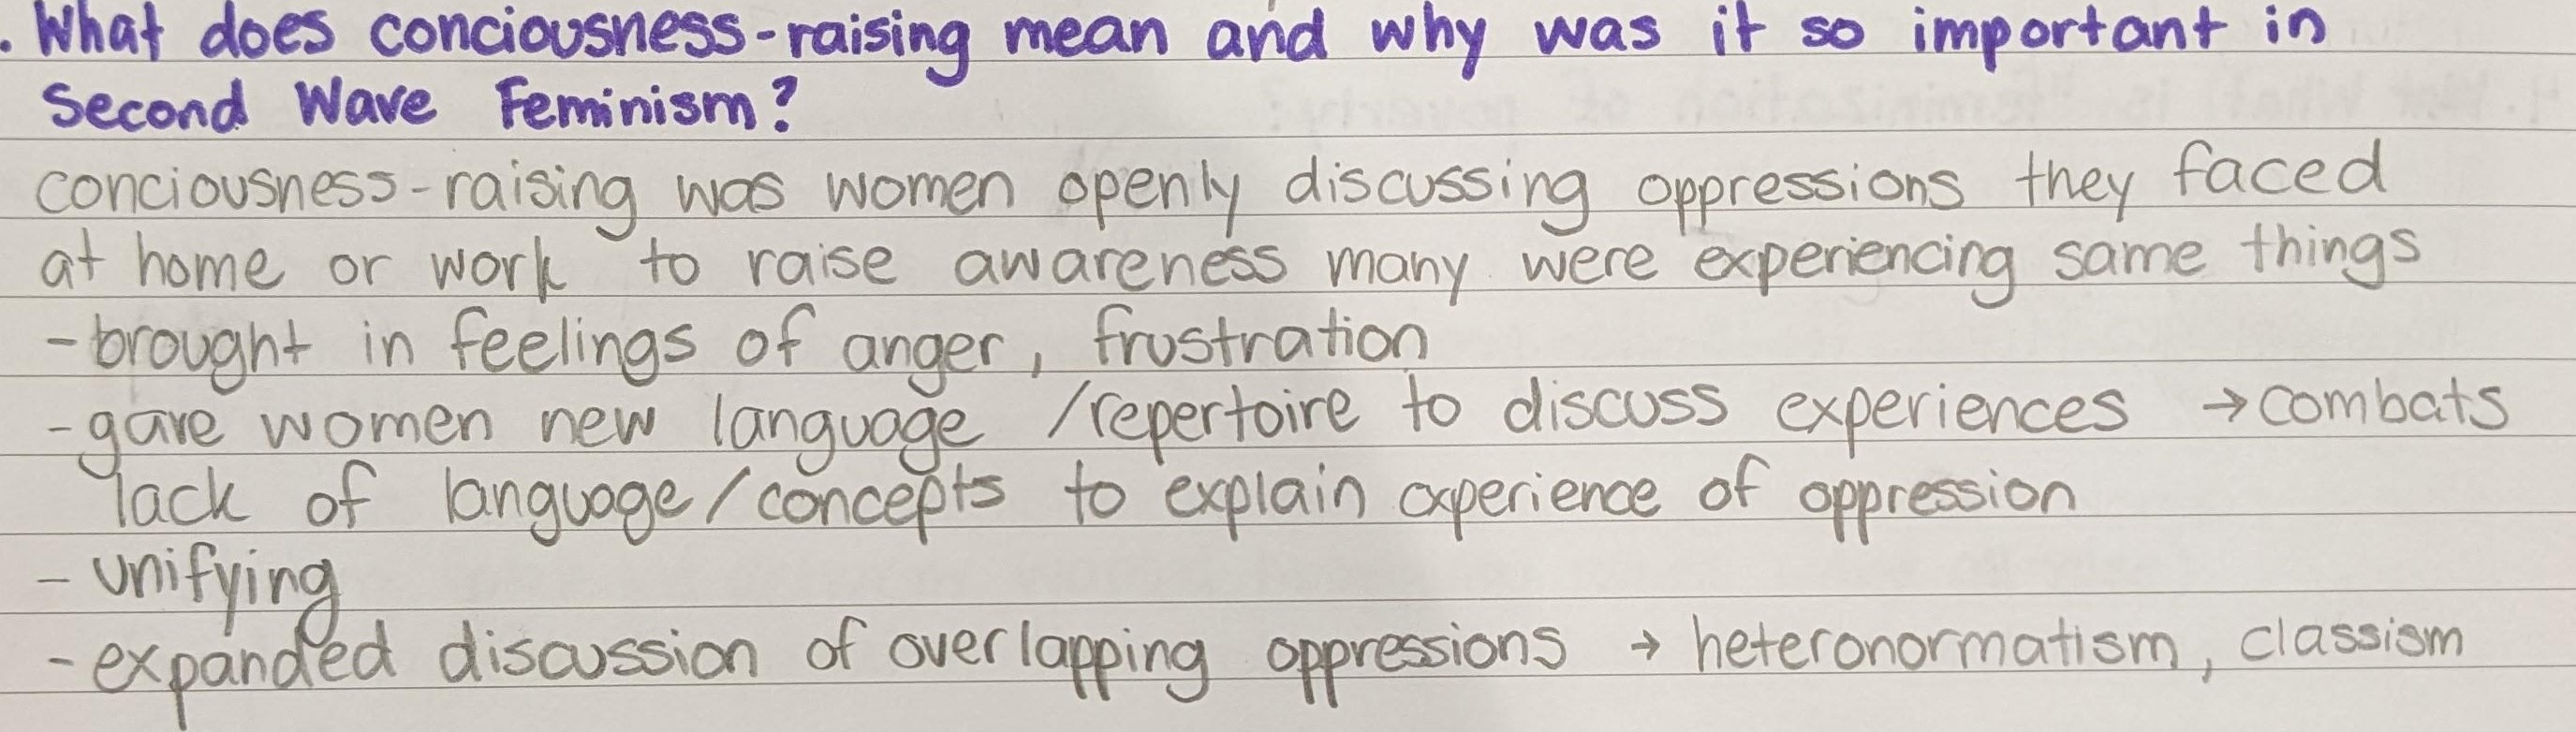 . What does conciousness-raising mean and why was it so important in
Second Wave Feminism?
conciousness-raising was women openly discussing oppressions they faced
at home or work to raise awareness many were experiencing same things
- brought in feelings of anger, frustration
- gave women new language /repertoire to discuss experiences → combats
lack of language/concepts to explain experience of oppression
- unifying
- expanded discussion of overlapping oppressions → heteronormatism, classism